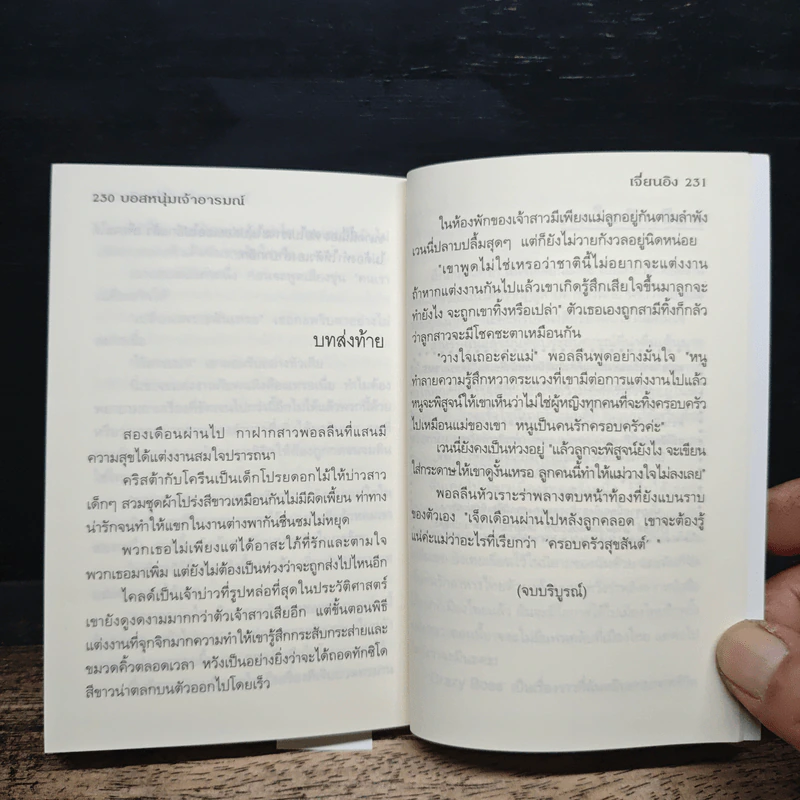 230 บอสหนุ่มเจ้าอารมณ์
บทส่งท้าย
สองเดือนผ่านไป กาฝากสาวพอลลีนที่แสนมี
ความสุขได้แต่งงานสมใจปรารถนา
คริสต้ากับโครีนเป็นเด็กโปรยดอกไม้ให้บ่าวสาว
เด็กๆ สวมชุดผ้าโปร่งสีขาวเหมือนกันไม่มีผิดเพี้ยน ท่าทาง
น่ารักจนทำให้แขกในงานต่างพากันชื่นชมไม่หยุด
พวกเธอไม่เพียงแต่ได้อาสะใภ้ที่รักและตามใจ
พวกเธอมาเพิ่ม แต่ยังไม่ต้องเป็นห่วงว่าจะถูกส่งไปไหนอีก
ไคลด์เป็นเจ้าบ่าวที่รูปหล่อที่สุดในประวัติศาสตร์
เขายังดูงดงามมากกว่าตัวเจ้าสาวเสียอีก แต่ขั้นตอนพิธี
แต่งงานที่จุกจิกมากความทำให้เขารู้สึกกระสับกระส่ายและ
ขมวดคิ้วตลอดเวลา หวังเป็นอย่างยิ่งว่าจะได้ถอดทักซิโด
สีขาวน่าตลกบนตัวออกไปโดยเร็ว
เจี่ยนอิง 231
ในห้องพักของเจ้าสาวมีเพียงแม่ลูกอยู่กันตามลำพัง
เวนนี่ปลาบปลื้มสุดๆ แต่ก็ยังไม่วายกังวลอยู่นิดหน่อย
"เขาพูดไม่ใช่เหรอว่าชาตินี้ไม่อยากจะแต่งงาน
ถ้าหากแต่งงานกันไปแล้วเขาเกิดรู้สึกเสียใจขึ้นมาลูกจะ
ทำยังไง จะถูกเขาทิ้งหรือเปล่า" ตัวเธอเองถูกสามีทิ้งก็กลัว
ว่าลูกสาวจะมีโชคชะตาเหมือนกัน
"วางใจเถอะค่ะแม่" พอลลีนพูดอย่างมั่นใจ "หนู
ทำลายความรู้สึกหวาดระแวงที่เขามีต่อการแต่งงานไปแล้ว
หนูจะพิสูจน์ให้เขาเห็นว่าไม่ใช่ผู้หญิงทุกคนที่จะทิ้งครอบครัว
ไปเหมือนแม่ของเขา หนูเป็นคนรักครอบครัวค่ะ"
เวนนี่ยังคงเป็นห่วงอยู่ "แล้วลูกจะพิสูจน์ยังไง จะเขียน
ใส่กระดาษให้เขาดูงั้นเหรอ ลูกคนนี้ทำให้แม่วางใจไม่ลงเลย"
พอลลีนหัวเราะร่าพลางตบหน้าท้องที่ยังแบนราบ
ของตัวเอง "เจ็ดเดือนผ่านไปหลังลูกคลอด เขาจะต้องรู้
แน่ค่ะแม่ว่าอะไรที่เรียกว่า 'ครอบครัวสุขสันต์' "
(จบบริบูรณ์)